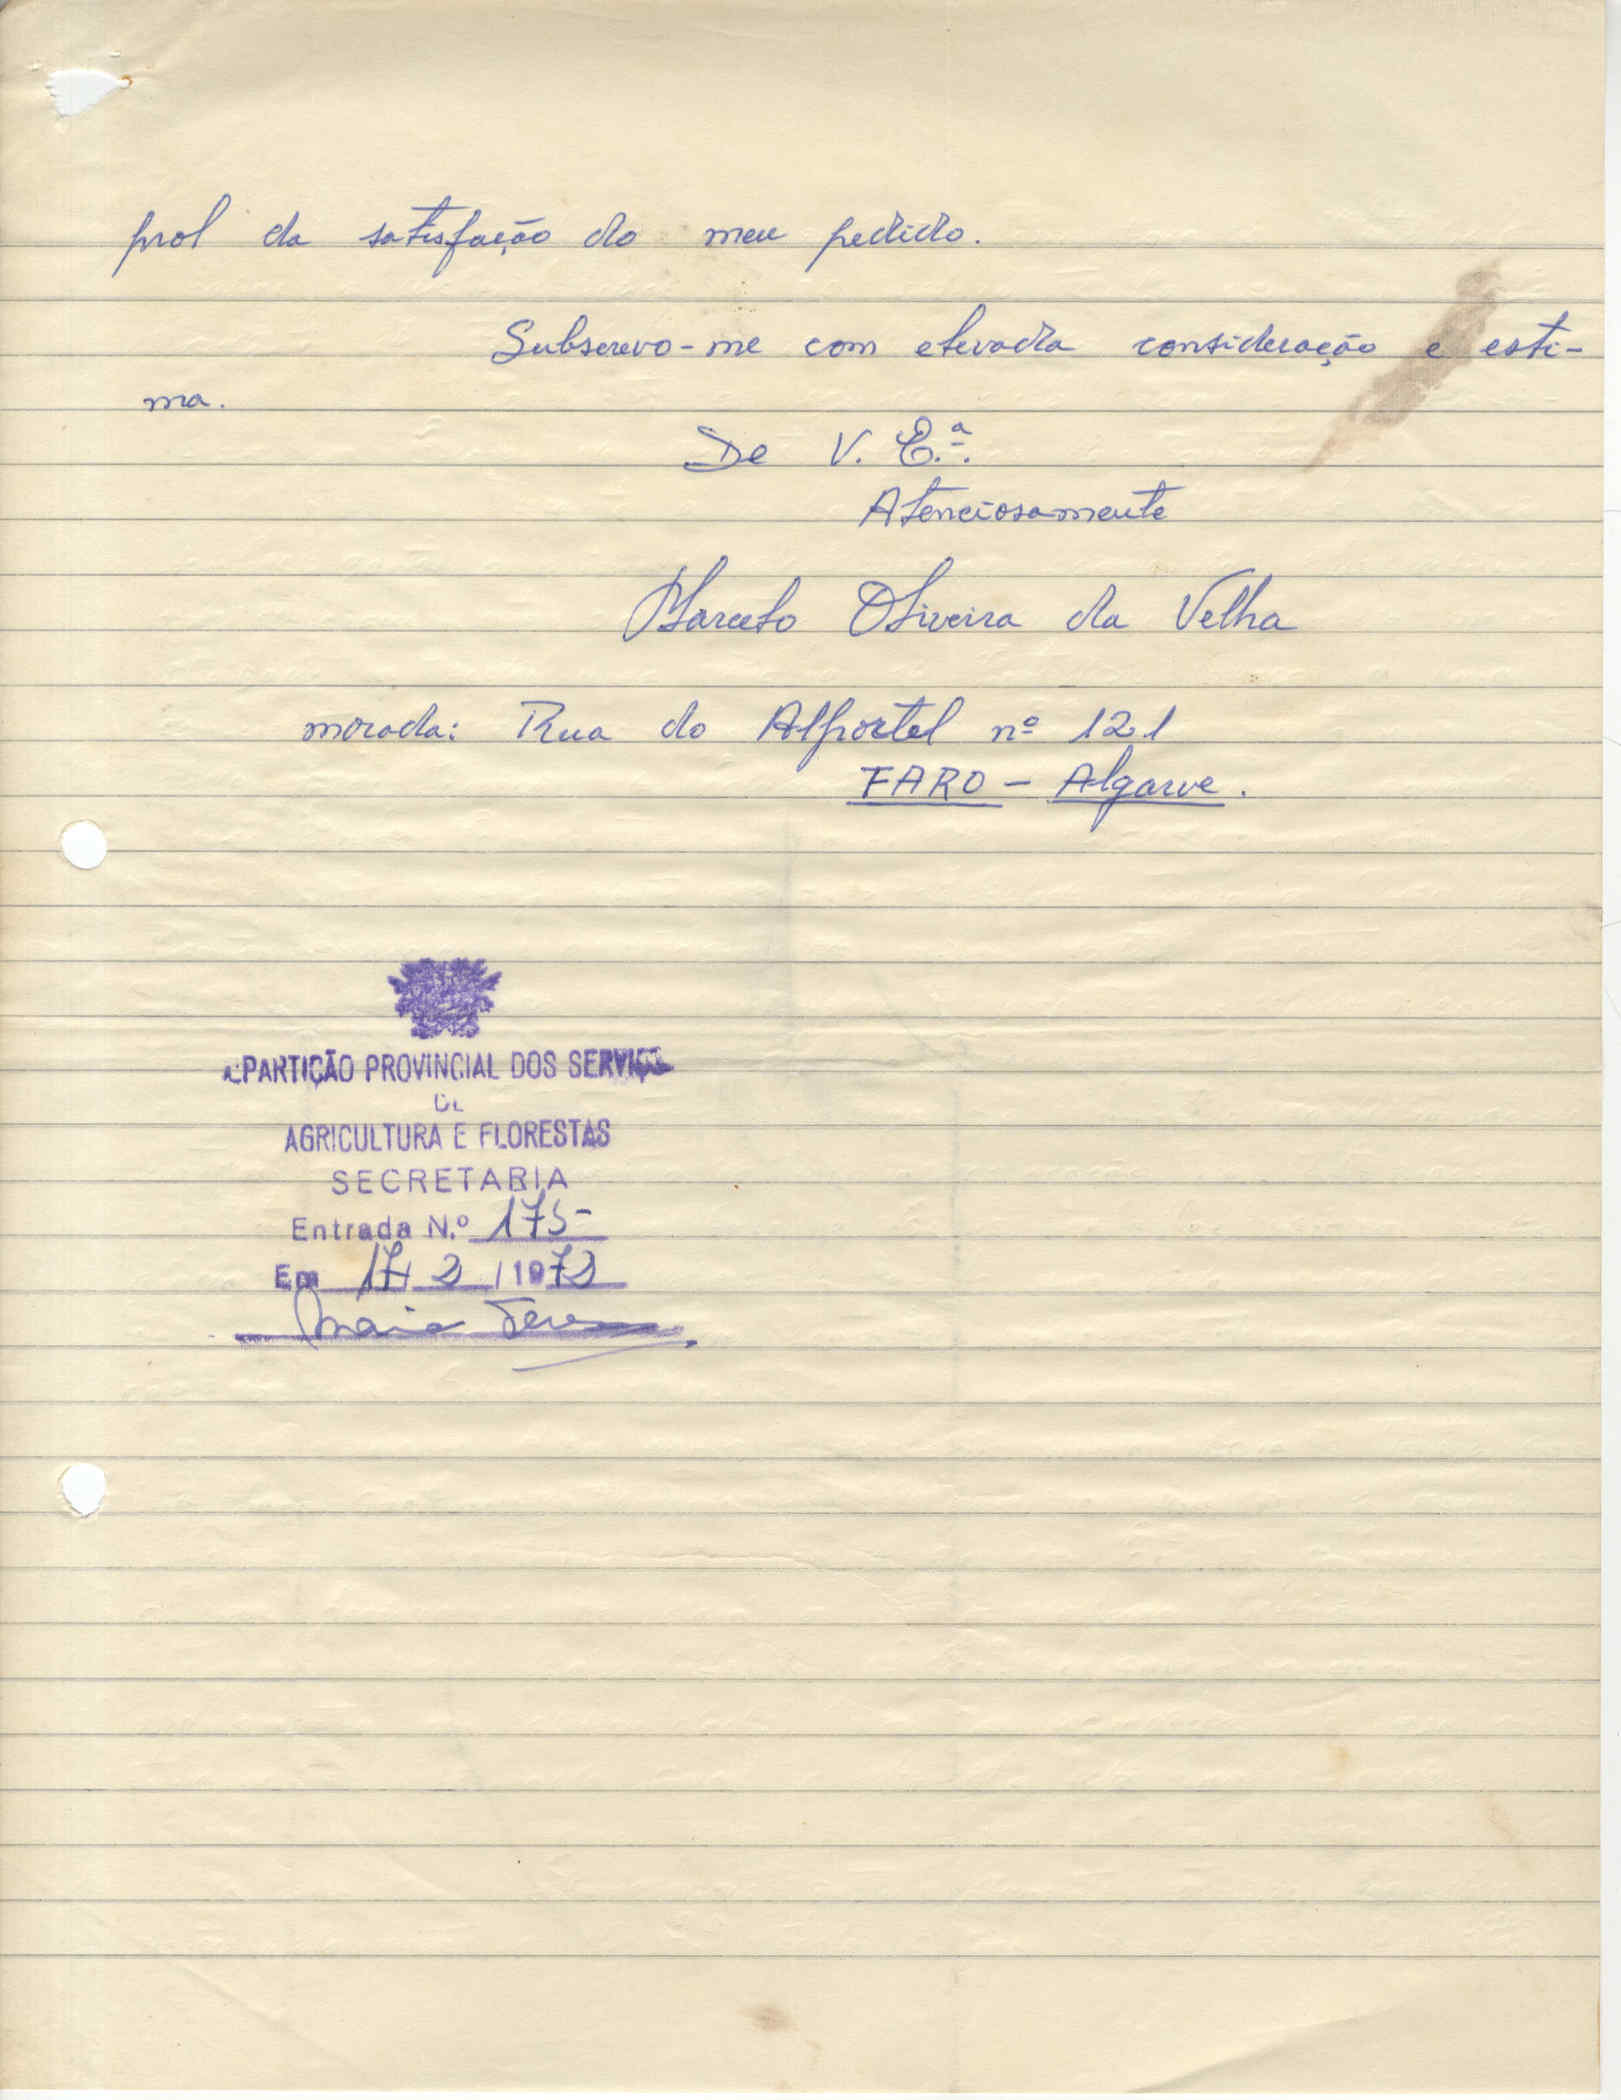 prol da satisfação do meu pedido.
Subscrevo-me com elevada consideração e esti-
ma.
De V. E.ª.
Atenciosamente
Marcelo Oliveira da Velha
morada: Rua do Alportel nº 121
FARO - Algarve.
EPARTIÇÃO PROVINCIAL DOS SERVIÇOS
DE
AGRICULTURA E FLORESTAS
SECRETARIA
Entrada N.º 175-
Em 17/2/1972
Maria Teresa